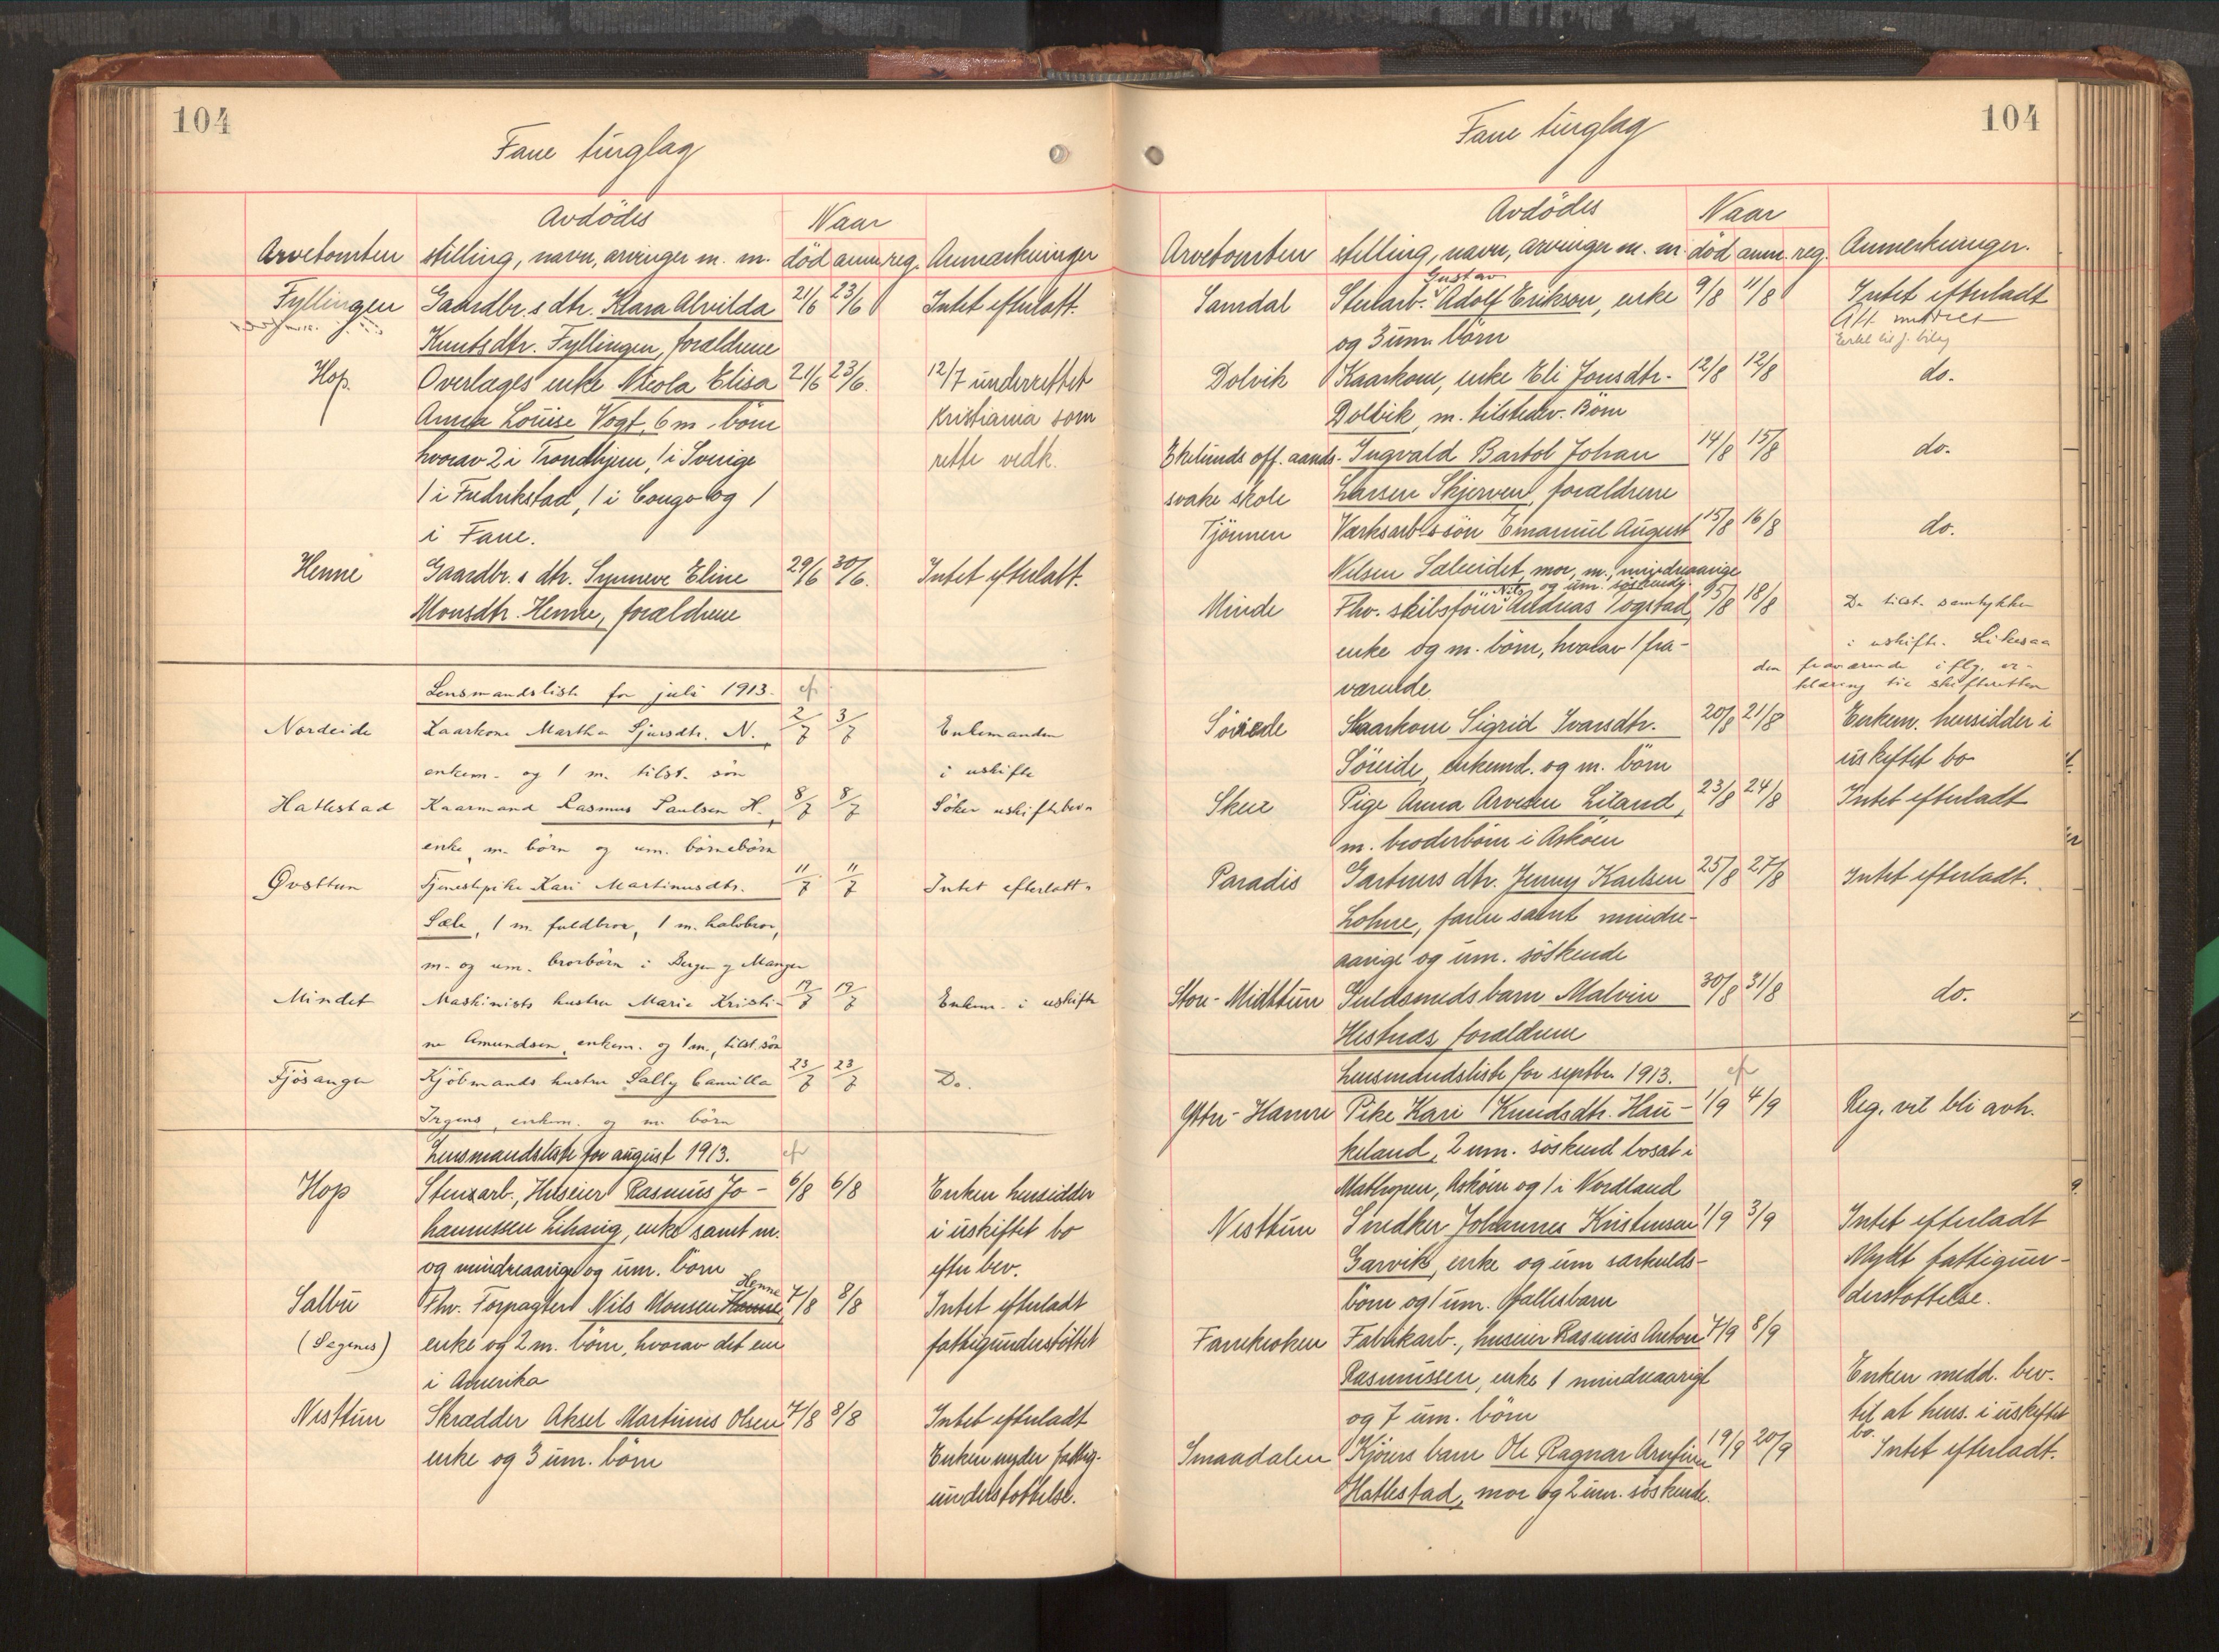 104
Fane tinglag
Avdödes Naar
Arvetomten stilling, navn, arvinger m. m. död anm. reg. Anmærkninger
Fyllingen Gaardbr.s dtr. Klara Alvilda 21/6 23/6 Intet efterlatt.
Knutsdtr. Fyllingen, forældrene
Hop Overlæges enke Nicola Elisa 21/6 23/6. 12/7 underrettet
Anna Louise Vogt, 6 m. börn Kristiania som
hvorav 2 i Trondhjem, 1 i Sverige rette vedk.
1 i Fredrikstad, 1 i Congo og 1
i Fane.
Henne Gaardbr.s dtr. Synneve Eline 29/6 30/6. Intet efterlatt.
Monsdtr. Henne, forældrene
Lensmandsliste for juli 1913.
Nordeide Kaarkone Martha Sjursdtr. N., 2/7 3/7 Enkemanden
enkem. og 1 m. tilst. sön i uskifte
Hatlestad Kaarmand Rasmus Paulsen H., 8/7 8/7 Söker uskiftebev.
enke, m. börn og um. börnebörn
Øvsttun Tjenestepike Kari Martinusdtr. 11/7 11/7 Intet efterlatt.
Sæle, 1 m. fuldbror, 1 m. halvbror,
m. og um. brorbörn i Bergen og Manger
Mindet Maskinists hustru Marie Kristi- 19/7 19/7 Enkem. i uskifte
ne Amundsen, enkem. og 1 m., tilst. sön
Fjösanger Kjöbmands hustru Sally Camilla 23/7 23/7 Do.
Irgens, enkem. og m. börn
Lensmandsliste for august 1913.
Hop Stenarb., Huseier Rasmus Jo- 6/8 6/8 Enken hensidder
hannessen Lihaug, enke samt m. i uskiftet bo
og mindreaarige og um. börn efter bev.
Henne
Salbu Fhv. Forpagter Nils Monsen 7/8 8/8 Intet efterladt
(Søgnes) enke og 2 m. börn, hvorav det ene fattigunderstöttet
i Amerika
Nesttun Skrædder Aksel Martinus Olsen 7/8 8/8 Intet efterladt
enke og 3 um. börn Enken nyder fattig-
understøttelse.
104
Fane tinglag
Avdödes Naar
Arvetomten stilling, navn, arvinger m. m. död anm. reg. Anmerkninger.
Gustav
Samdal Stenarb. Adolf Erikson, enke 9/8 11/8 Intet efterladt
og 3 um. börn
Dolvik Kaarkone, enke Eli Jonsdtr. 12/8 12/8 do.
Dolvik, m. tilstedev. Börn
Ekelunds off. aands- Ingvald Bartol Johan 14/8 15/8 do.
svake skole Larsen Skjerven, forældrene
Tjönnen Værksarb.s sön Emanuel August 15/8 16/8 do.
Nilsen Sæleidet, mor, m., mindreaarige
og um. söskende.
Nils
Minde Fhv. skibsförer Andreas Vogstad, 15/8 18/8 De tilst. samtykker
enke og m. börn, hvorav 1 fra- i uskifte. Likesaa
værende den fraværende iflg. er-
klæring til skifteretten
Söreide Kaarkone Sigrid Ivarsdtr. 20/8 21/8 Enkem. hensidder i
Söreide, enkemd. og m. börn uskiftet bo
Skeie Pige Anna Arvesen Liland, 23/8 24/8 Intet efterladt
m. broderbörn i Asköen
Paradis Gartners dtr. Jenny Karlsen 25/8 27/8 Intet efterladt.
Lohne, faren samt mindre-
aarige og um. söskende
Store-Midttun Guldsmeds barn Malvin 30/8 31/8 do.
Hestnæs, forældrene
Lensmandsliste for septbr. 1913.
Ytre-Hamre Pike Kari Knudsdtr. Hau- 1/9 4/9 Reg. vil bli avh.
keland, 2 um. söskend bosat i
Mathopen, Asköen og 1 i Nordland
Nesttun Snedker Johannes Kristensen 1/9 3/9 Intet efterladt
Garvik, enke og um særkulds- Nydt fattigun-
börn og 1 um. fællesbarn derstøttelse.
Fanekroken Fabrikarb., huseier Rasmus Anton 7/9 8/9
Rasmussen, enke 1 mindreaarigt Enken medd. bev.
og 7 um. börn til at hens. i uskiftet
bo.
Smaadalen Kjörers barn Ole Ragnar Arnfinn 19/9 20/9 Intet efterladt.
Hatlestad, mor og 2 um. söskende.